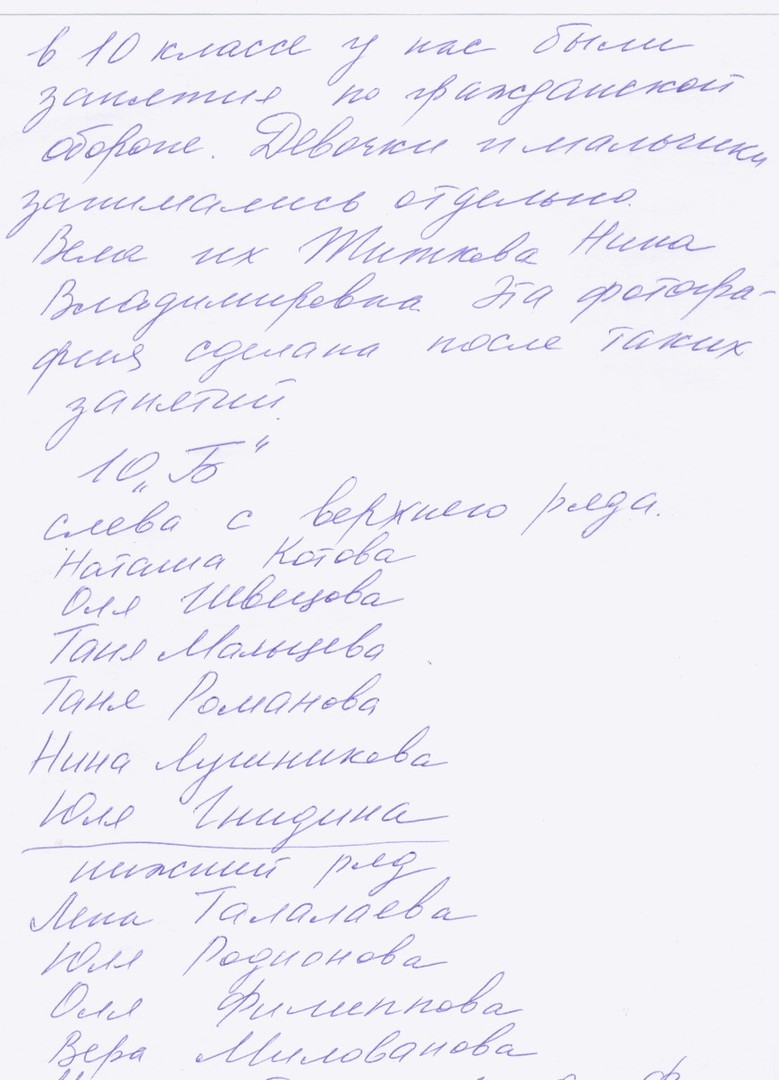 в 10 классе у нас были
занятия по гражданской
обороне. Девочки и мальчики
занимались отдельно.
Вела их Титкова Нина
Владимировна. Эта фотогра-
фия сделана после таких
занятий.
10 „Б“
слева с верхнего ряда.
Наташа Котова
Оля Швецова
Таня Мальцева
Таня Романова
Нина Лушникова
Юля Гнидина
нижний ряд
Лена Талалаева
Юля Родионова
Оля Филиппова
Вера Милованова